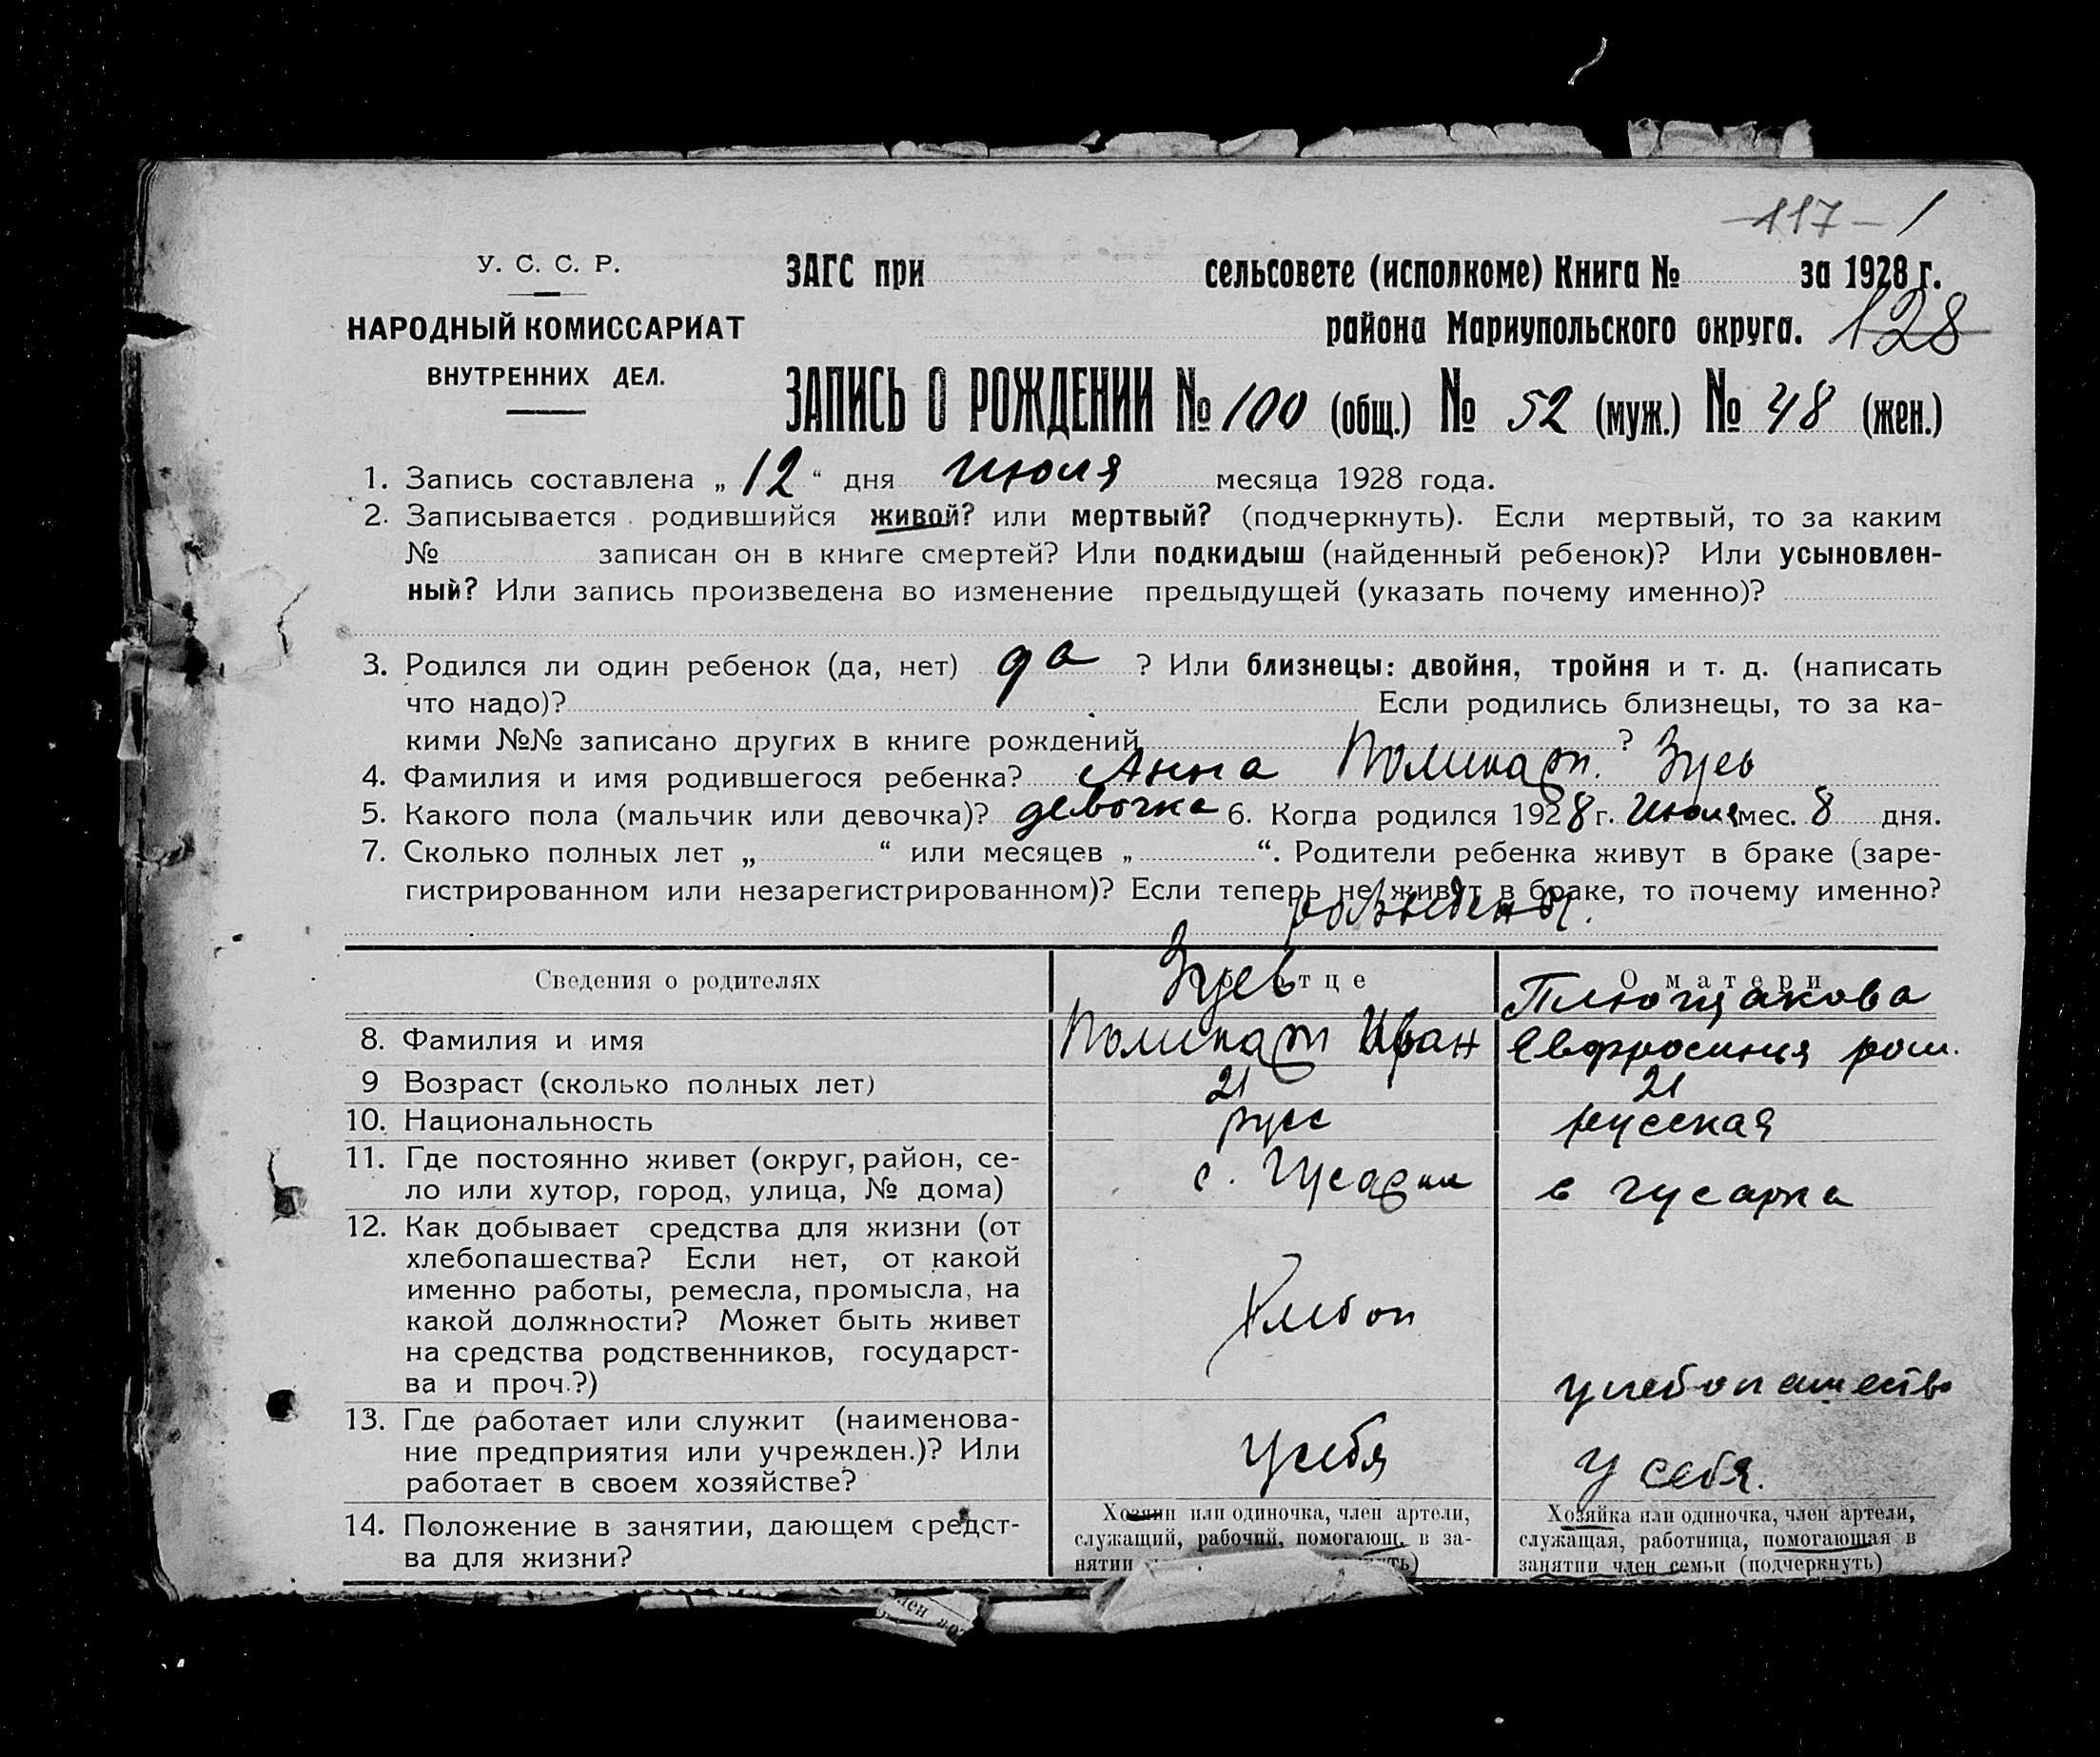 -117- /
У. С. С. Р.
НАРОДНЫЙ КОМИССАРИАТ
ВНУТРЕННИХ ДЕЛ.
ЗАГС при сельсовете (исполкоме) Книга № за 1928 г.
района Мариупольского округа. 128
ЗАПИСЬ О РОЖДЕНИИ № 100 (общ.) № 52 (муж.) № 48 (жен.)
1. Запись составлена „ 12 “ дня июля месяца 1928 года.
2. Записывается родившийся живой? или мертвый? (подчеркнуть). Если мертвый, то за каким
№ записан он в книге смертей? Или подкидыш (найденный ребенок)? Или усыновлен-
ный? Или запись произведена во изменение предыдущей (указать почему именно)?
3. Родился ли один ребенок (да, нет) да ? Или близнецы: двойня, тройня и т. д. (написать
что надо)? Если родились близнецы, то за ка-
кими №№ записано других в книге рождений ?
4. Фамилия и имя родившегося ребенка? Анна Поликарп. Зуев
5. Какого пола (мальчик или девочка)? девочка 6. Когда родился 1928 г. июля мес. 8 дня.
7. Сколько полных лет „ “ или месяцев „ “. Родители ребенка живут в браке (заре-
гистрированном или незарегистрированном)? Если теперь не живут в браке, то почему именно?
Сведения о родителях
Зуев
О матери
Плющакова
8. Фамилия и имя
Поликарп Иван
Евфросиния
9 Возраст (сколько полных лет)
21
21
10. Национальность
русс
русская
11. Где постоянно живет (округ, район, се-
ло или хутор, город, улица, № дома)
с. Гусарки
с гусарка
12. Как добывает средства для жизни (от
хлебопашества? Если нет, от какой
именно работы, ремесла, промысла, на
какой должности? Может быть живет
на средства родственников, государст-
ва и проч.?)
Хлебоп
13. Где работает или служит (наименова-
ние предприятия или учрежден.)? Или
работает в своем хозяйстве?
у себя
у себя.
14. Положение в занятии, дающем средст-
ва для жизни?
Хозяин или одиночка, член артели,
служащий, рабочий, помогающ. в за-
нятии
Хозяйка или одиночка, член артели,
служащая, работница, помогающая в
занятии член семьи (подчеркнуть)